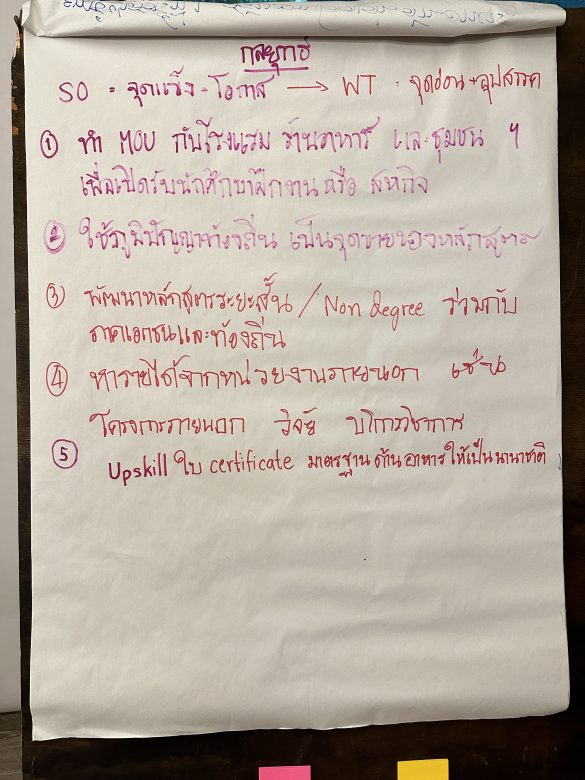 กลยุทธ์
SO = จุดแข็ง + โอกาส → WT = จุดอ่อน + อุปสรรค
① ทำ MOU กับโรงแรม ร้านอาหาร และชุมชน ฯ
เพื่อเปิดรับนักศึกษาฝึกงานหรือ สหกิจ
② ใช้ภูมิปัญญาท้องถิ่น เป็นจุดขายของหลักสูตร
③ พัฒนาหลักสูตรระยะสั้น / Non degree ร่วมกับ
ภาคเอกชนและท้องถิ่น
④ หารายได้จากหน่วยงานภายนอก เช่น
โครงการภายนอก วิจัย บริการวิชาการ
⑤ Upskill ใบ certificate มาตรฐานด้านอาหารให้เป็นนานาชาติ